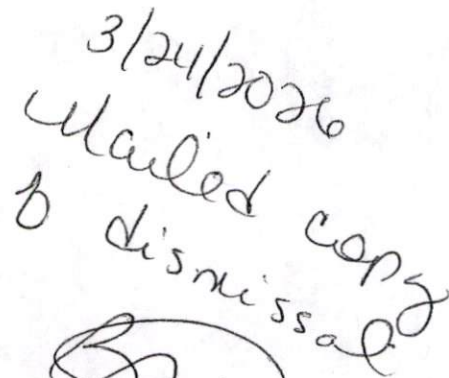 3/24/2026
Mailed copy
of dismissal